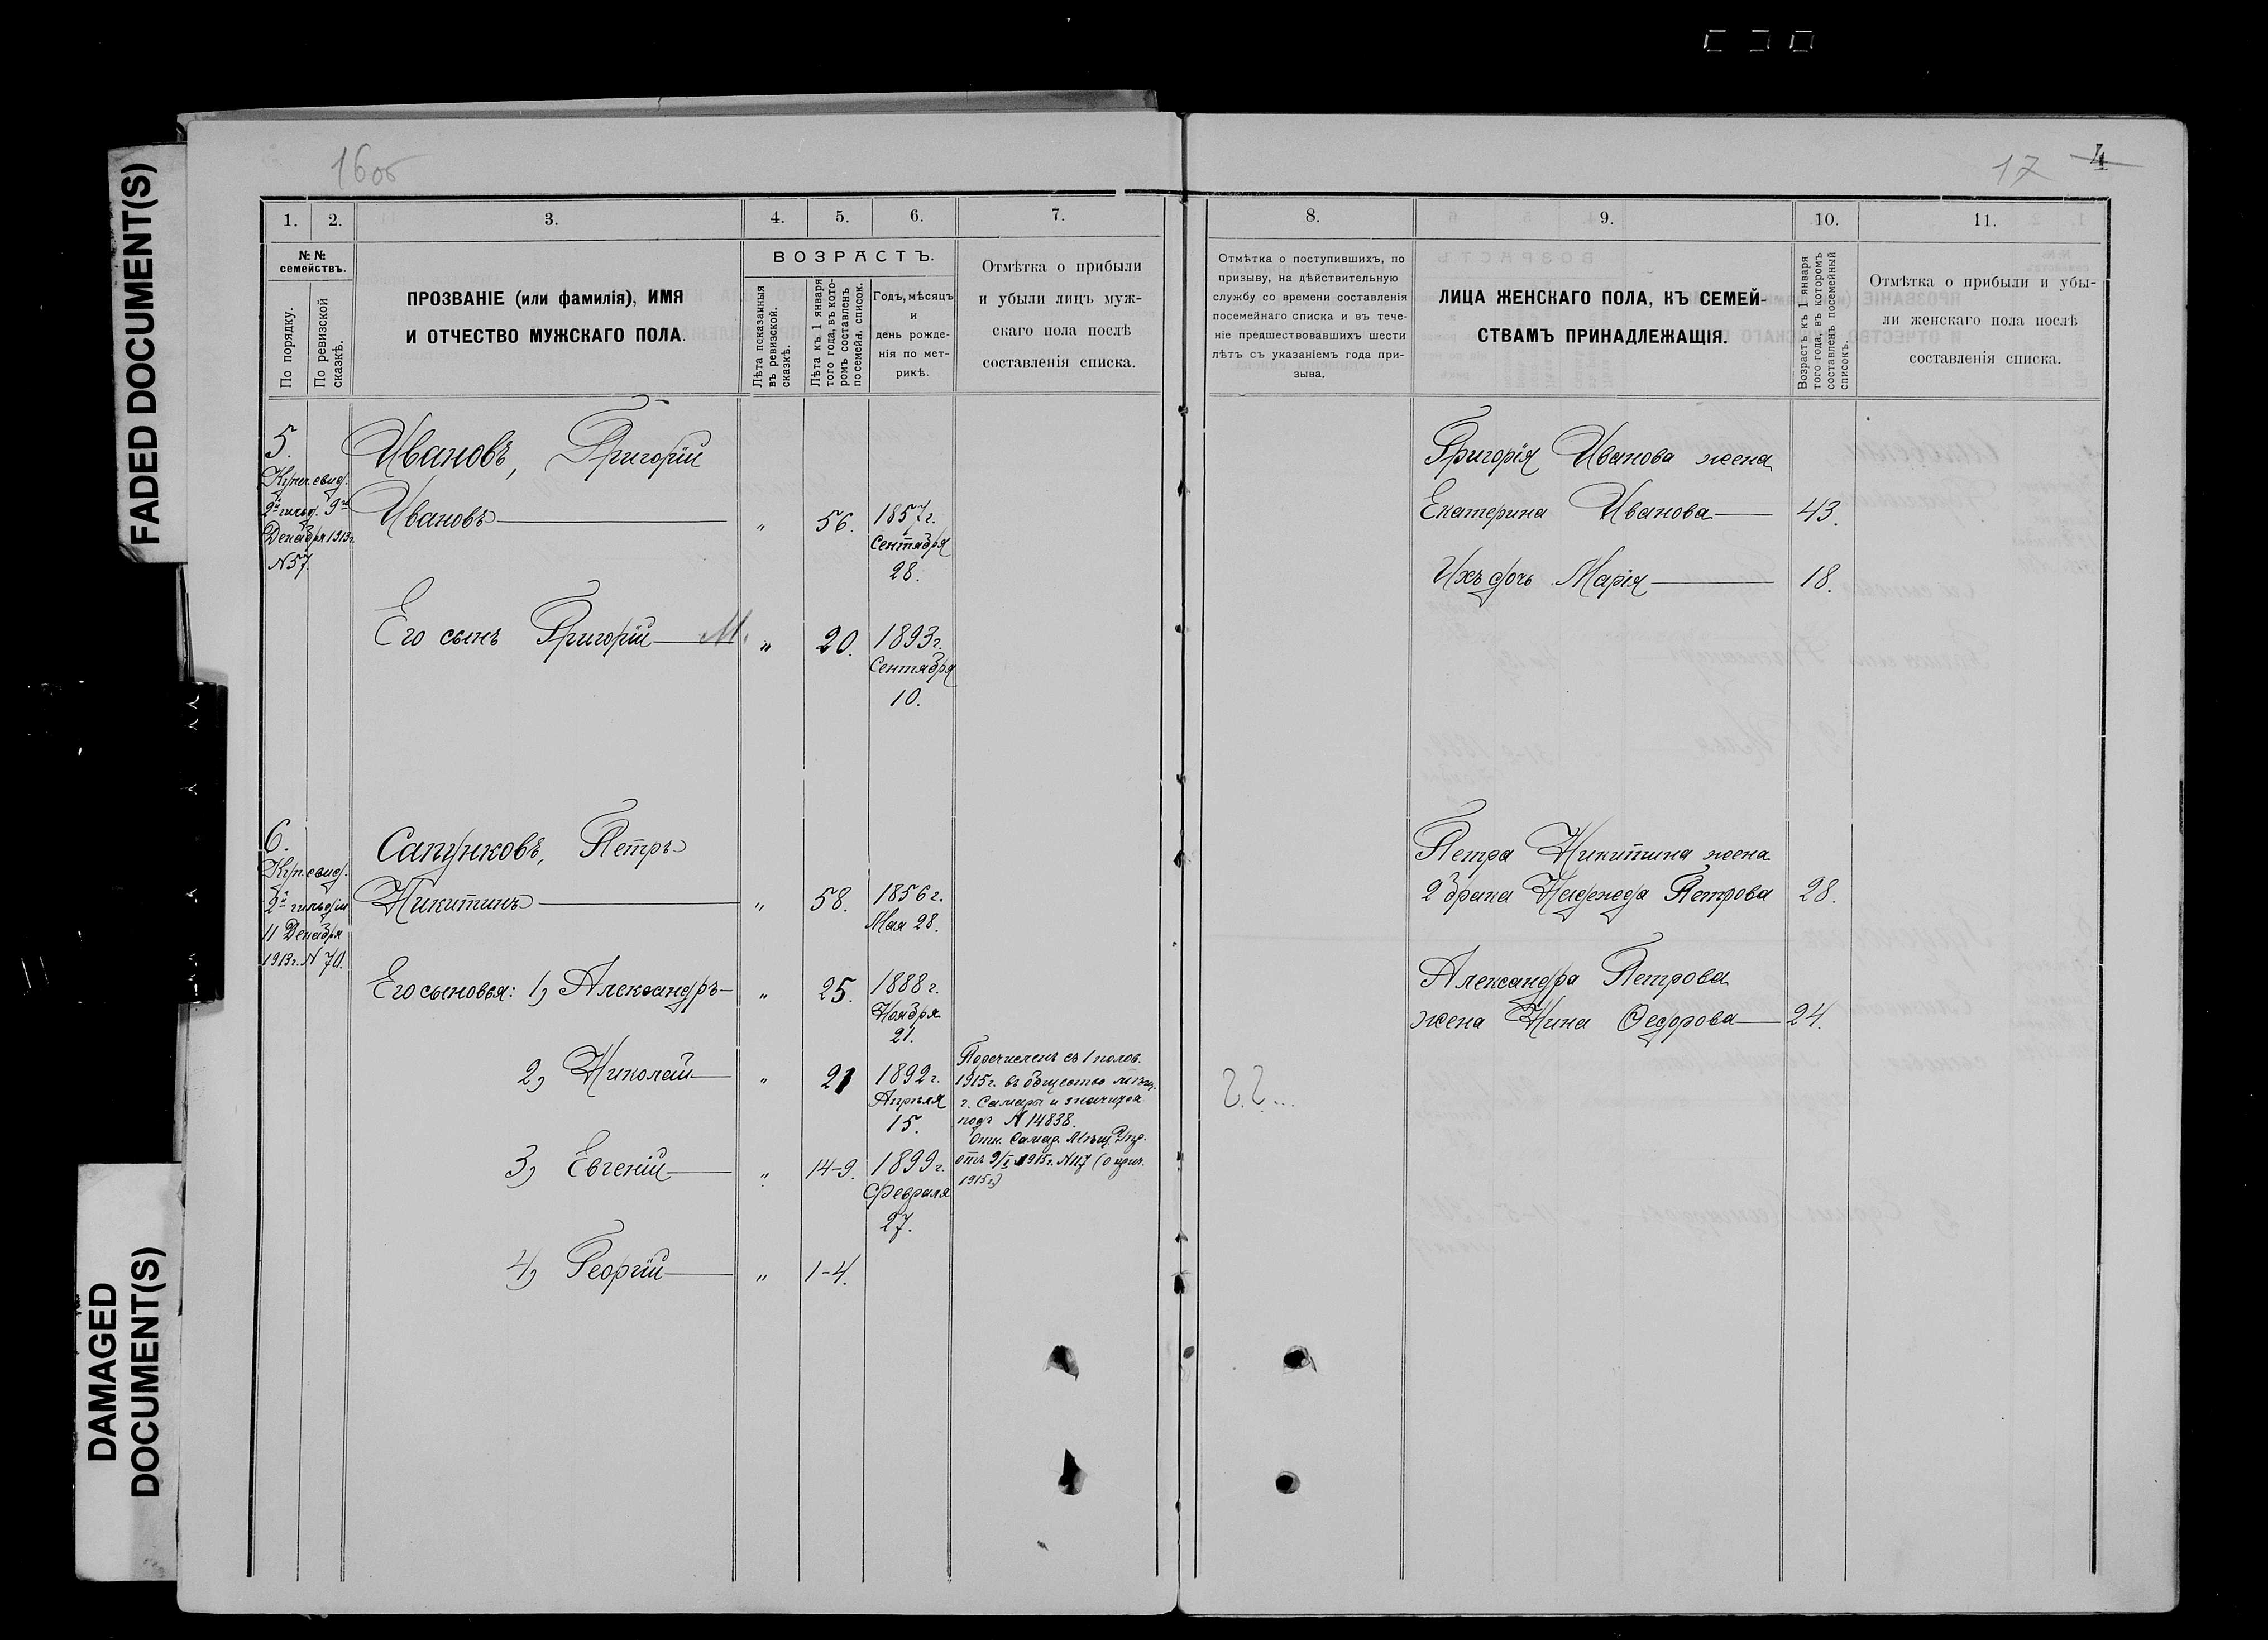 FADED DOCUMENT(S)
DAMAGED
DOCUMENT(S)
16об
1.
2.
3.
4.
5.
6.
7.
№ №
семействъ.
По порядку.
По ревизской
сказкѣ.
ПРОЗВАНІЕ (или фамилія), ИМЯ
И ОТЧЕСТВО МУЖСКАГО ПОЛА.
ВОЗРАСТЪ.
Лѣта показанныя
въ ревизской
сказкѣ.
Лѣта къ 1 января
того года, въ кото-
ромъ составленъ
посемейн. список.
Годъ, мѣсяцъ
и
день рожде-
нія по мет-
рикѣ.
Отмѣтка о прибыли
и убыли лицъ муж-
скаго пола послѣ
составленія списка.
5.
Куп. свид.
2й гильд. 9го
Декабря 1913г.
N 57
Ивановъ, Григорій
Ивановъ „ 56. 1857г.
Сентября
28.
Его сынъ Григорій М. „ 20. 1893г.
Сентября
10.
6.
Куп. свид.
2й гильдіи
11 Декабря
1913г. N 70.
Сапунковъ, Петръ
Никитинъ „ 58. 1856г.
Мая 28.
Его сыновья: 1) Александръ „ 25. 1888г.
Ноября
21.
2) Николай „ 21 1892г.
Апрѣля
15.
Перечисленъ съ 1 полов.
1915г. въ общество мѣщ.
г. Самары и значится
подъ N 14838.
Отн. Самар. Мѣщ. Упр.
отъ 9/I 1915г. N 117 (0
1915г.)
3) Евгеній „ 14-9. 1899г.
Февраля
27.
4) Георгій „ 1-4.
17 4
8.
9.
10.
11.
Отмѣтка о поступившихъ, по
призыву, на дѣйствительную
службу со времени составленія
посемейнаго списка и въ тече-
ніе предшествовавшихъ шести
лѣтъ съ указаніемъ года при-
зыва.
ЛИЦА ЖЕНСКАГО ПОЛА, КЪ СЕМЕЙ-
СТВАМЪ ПРИНАДЛЕЖАЩІЯ.
Возрастъ къ 1 января
того года, въ которомъ
составленъ посемейный
списокъ.
Отмѣтка о прибыли и убы-
ли женскаго пола послѣ
составленія списка.
Григорія Иванова жена
Екатерина Иванова 43.
Ихъ дочь Марія 18.
Петра Никитина жена
2 брака Надежда Петрова 28.
Александра Петрова
жена Нина Ѳедорова 24.